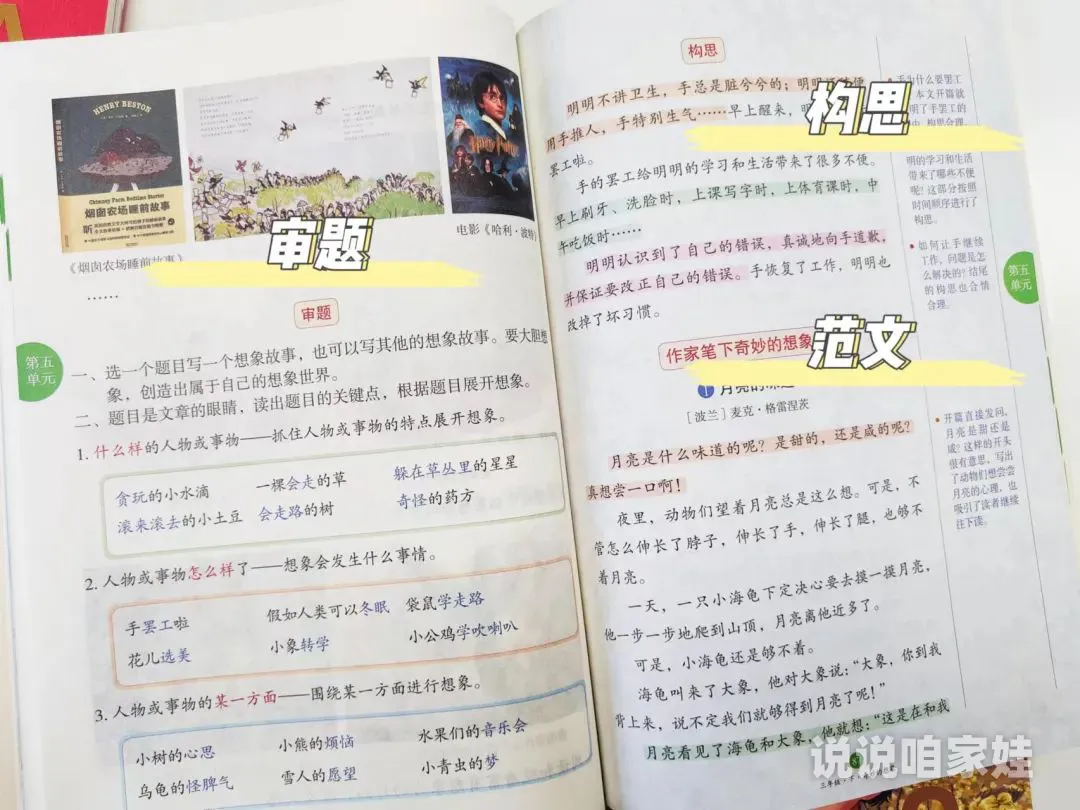 HENRY BESTON
Chimney Farm Bedtime Stories
烟囱农场睡前故事
Harry Potter
电影《哈利·波特》
《烟囱农场睡前故事》
审题
……
审题
第五
单元
一、选一个题目写一个想象故事，也可以写其他的想象故事。要大胆想
象，创造出属于自己的想象世界。
二、题目是文章的眼睛，读出题目的关键点，根据题目展开想象。
1. 什么样的人物或事物——抓住人物或事物的特点展开想象。
贪玩的小水滴 一棵会走的草 躲在草丛里的星星
滚来滚去的小土豆 会走路的树 奇怪的药方
2. 人物或事物怎么样了——想象会发生什么事情。
手罢工啦 假如人类可以冬眠 袋鼠学走路
花儿选美 小象转学 小公鸡学吹喇叭
3. 人物或事物的某一方面——围绕某一方面进行想象。
小树的心思 小熊的烦恼 水果们的音乐会
乌龟的怪脾气 雪人的愿望 小青虫的梦
构思
明明不讲卫生，手总是脏兮兮的；明明
用手推人，手特别生气……早上醒来，
罢工啦。
构思
手的罢工给明明的学习和生活带来了很多不便。
早上刷牙、洗脸时，上课写字时，上体育课时，中
午吃饭时……
明明认识到了自己的错误，真诚地向手道歉，
并保证要改正自己的错误。手恢复了工作，明明也
改掉了坏习惯。
手为什么要罢工
本文开篇就
明了手罢工的
构思合理
明的学习和生活
带来了哪些不便
呢？这部分按照
时间顺序进行了
构思。
如何让手继续
工作，问题是怎
么解决的？结尾
的构思也合情
合理。
第五
单元
作家笔下奇妙的想象
范文
1 月亮的味道
［波兰］麦克·格雷涅茨
月亮是什么味道的呢？是甜的，还是咸的呢？
真想尝一口啊！
夜里，动物们望着月亮总是这么想。可是，不
管怎么伸长了脖子，伸长了手，伸长了腿，也够不
着月亮。
一天，一只小海龟下定决心要去摸一摸月亮，
他一步一步地爬到山顶，月亮离他近多了。
可是，小海龟还是够不着。
海龟叫来了大象，他对大象说：“大象，你到我
背上来，说不定我们就够得到月亮了呢！”
月亮看见了海龟和大象，他就想：“这是在和我
开篇直接发问，
月亮是甜还是
咸？这样的开头
很有意思，写出
了动物们想尝尝
月亮的心理，也
吸引了读者继续
往下读。
说说咱家娃